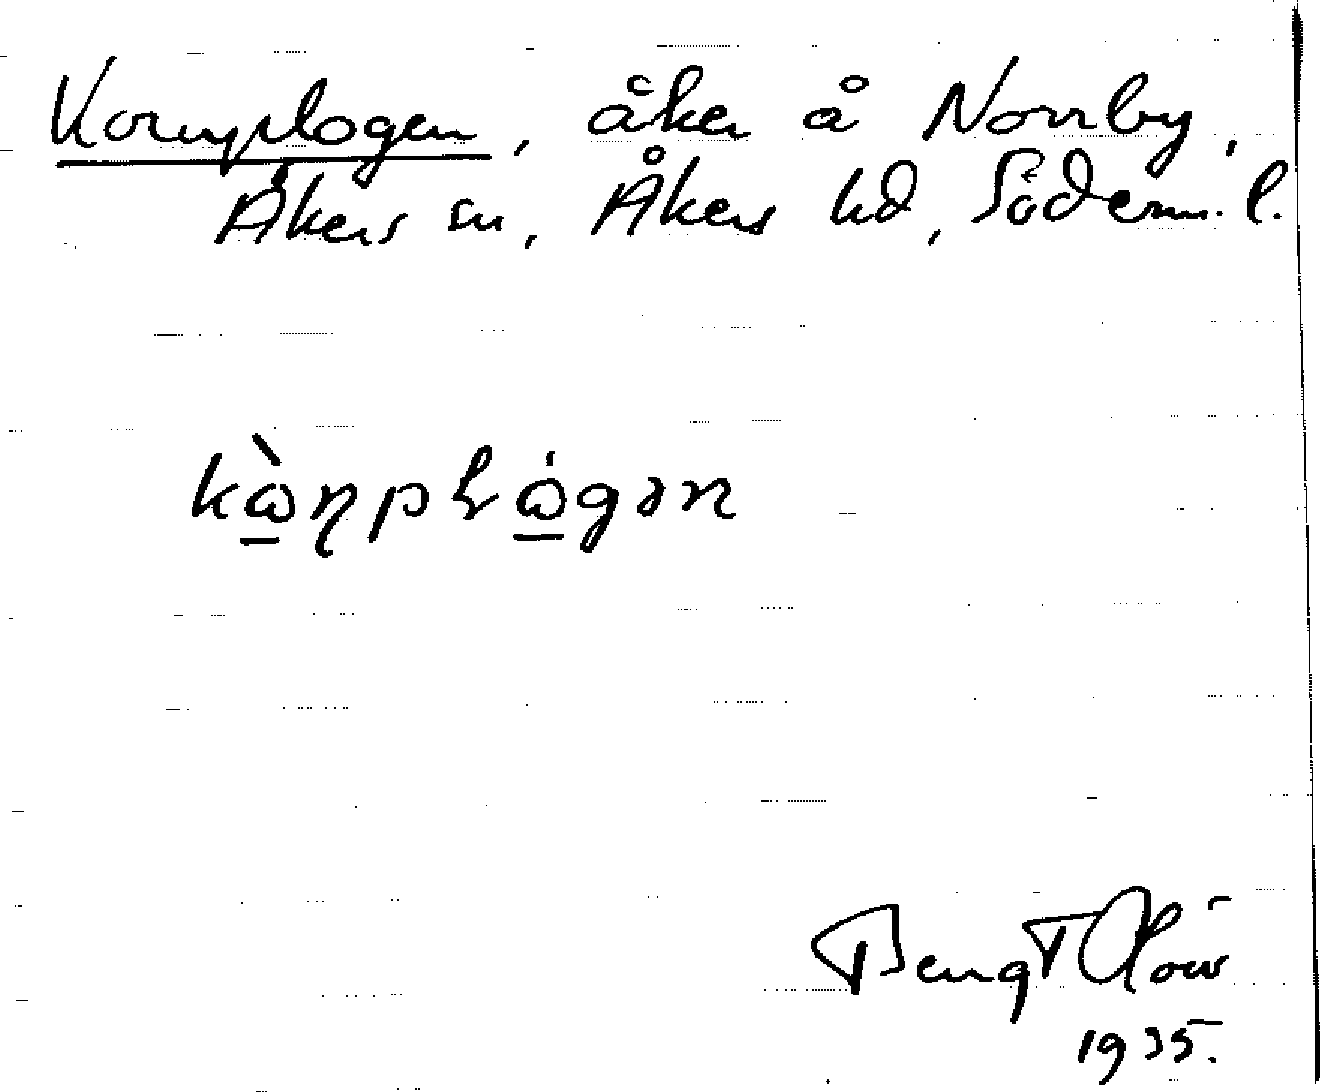 Kornplogen, åker å Norrby,
Åkers sn, Åkers hd, Söderm. l.
kὼηpƚώgən
Bengt
1935.